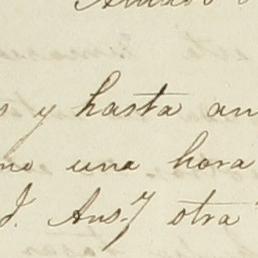 s y hasta an
mo una hora
J. Aus.7 otra